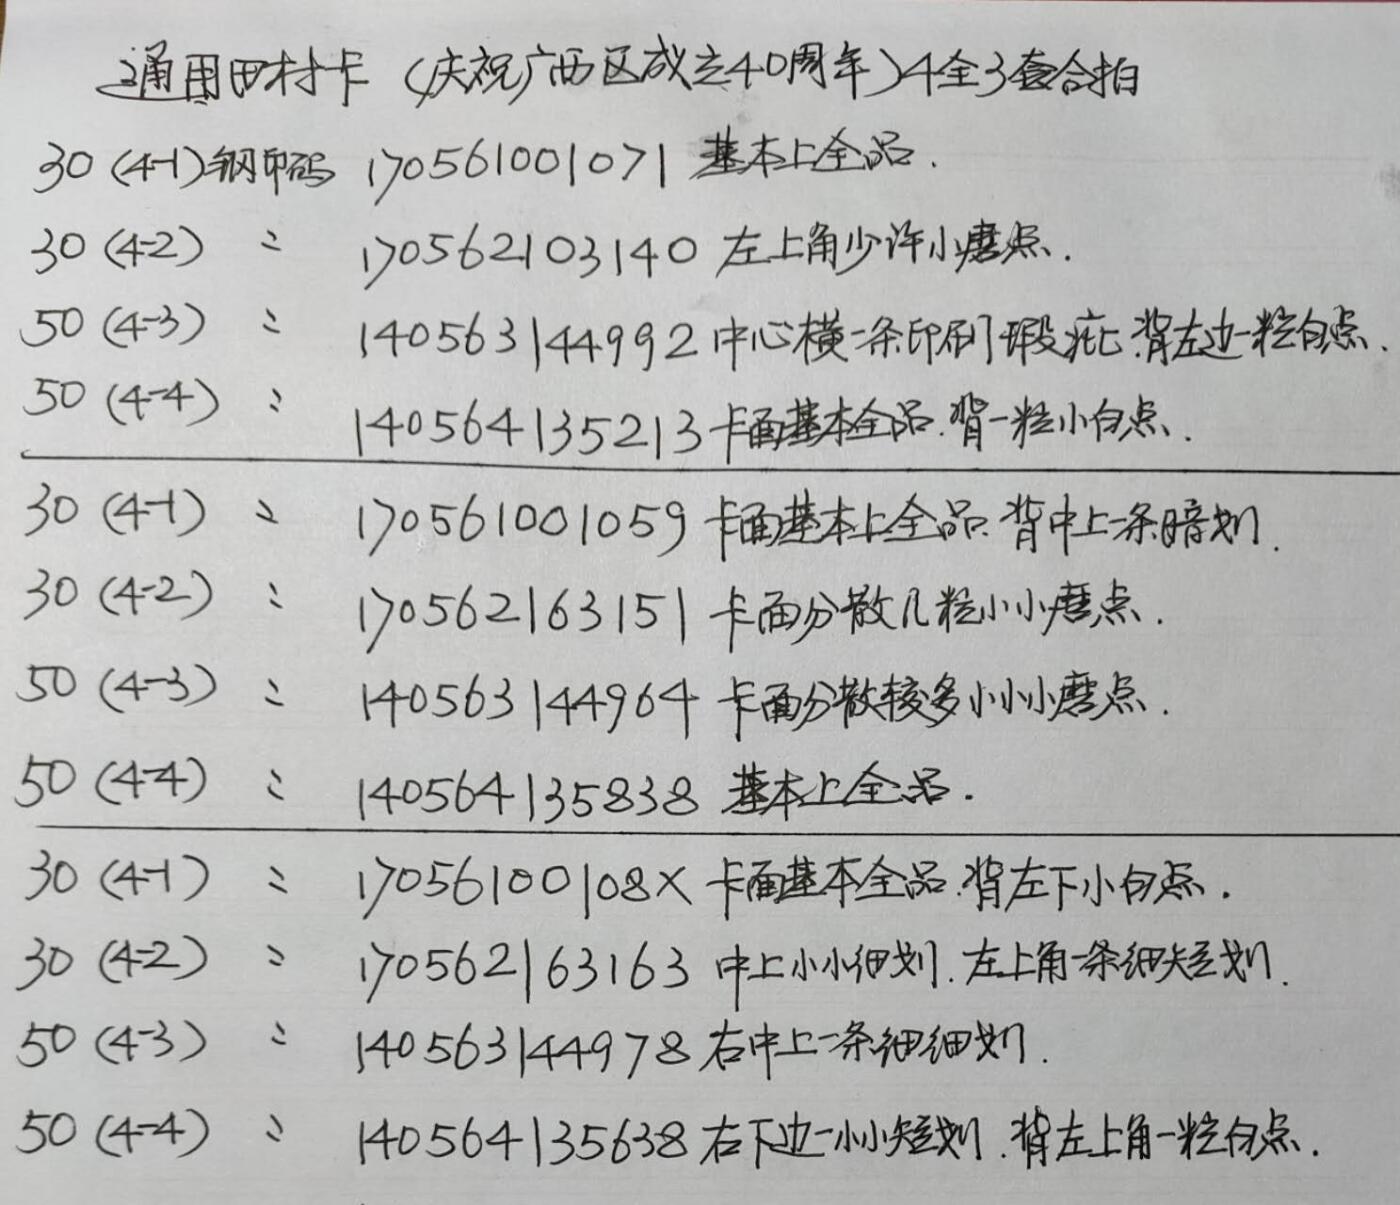 通用田村卡（庆祝广西区成立40周年）4全3套合拍
30（4-1）钢印码 170561001071 基本上全品.
30（4-2） 〃 170562103140 左上角少许小磨点.
50（4-3） 〃 140563144992 中心横一条印刷瑕疵.背左边一粒白点.
50（4-4） 〃 140564135213 卡面基本全品.背一粒小白点.
30（4-1） 〃 170561001059 卡面基本上全品.背中上一条暗划.
30（4-2） 〃 170562163151 卡面分散几粒小小磨点.
50（4-3） 〃 140563144964 卡面分散较多小小小磨点.
50（4-4） 〃 140564135838 基本上全品.
30（4-1） 〃 17056100108X 卡面基本全品.背左下小白点.
30（4-2） 〃 170562163163 中上小小细划.左上角一条细短划.
50（4-3） 〃 140563144978 右中上一条细细划.
50（4-4） 〃 140564135638 右下边一小小短划.背左上角一粒白点.